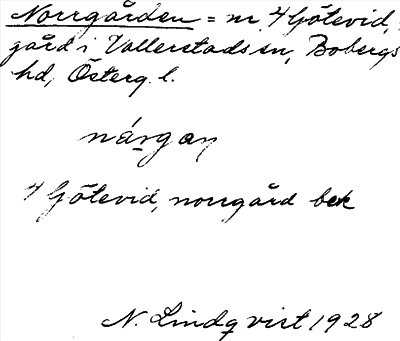 Norrgården = nr 4 Götevid,
gård i Vallerstads sn, Bobergs
hd, Österg. l.
nárgan
4 Götevid, norrgård bek
N. Lindqvist 1928